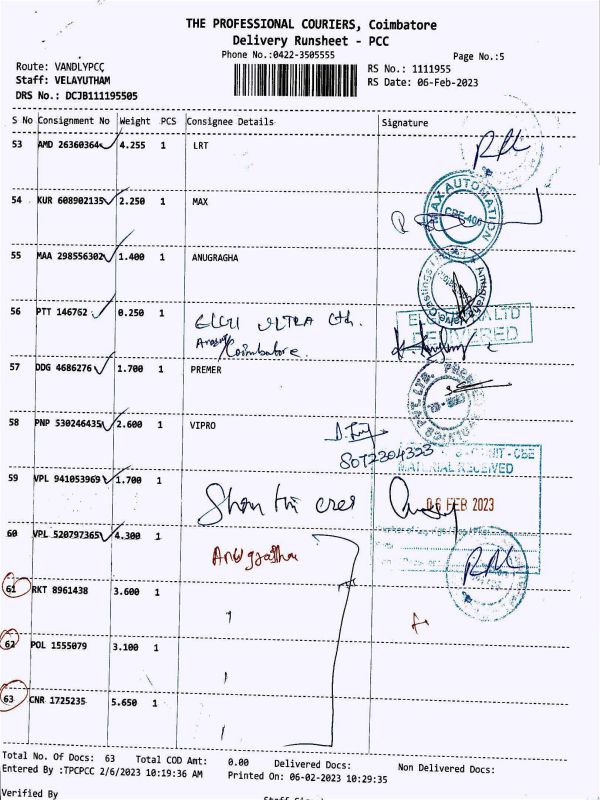 THE PROFESSIONAL COURIERS, Coimbatore
Delivery Runsheet - PCC
Phone No.:0422-3505555
Page No.:5
Route: VANDLYPCC
RS No.: 1111955
Staff: VELAYUTHAM
RS Date: 06-Feb-2023
DRS No.: DCJB111195505
S No Consignment No Weight PCS Consignee Details Signature
53 AMD 26360364 4.255 1 LRT
54 KUR 608902135 2.250 1 MAX
MAX AUTOMATION
55 MAA 298556302 1.400 1 ANUGRAGHA
56 PTT 146762 0.250 1
ELGI ULTRA Ltd.
Coimbatore.
DELIVERED
57 DDG 4686276 1.700 1 PREMER
58 PNP 530246435 2.600 1 VIPRO
8072304323
MATERIAL RECEIVED
59 VPL 941053969 1.700 1
06 FEB 2023
60 VPL 520797365 4.300 1
61 RKT 8961438 3.600 1
62 POL 1555079 3.100 1
63 CNR 1725235 5.650 1
Total No. Of Docs: 63 Total COD Amt: 0.00 Delivered Docs: Non Delivered Docs:
Entered By :TPCPCC 2/6/2023 10:19:36 AM Printed On: 06-02-2023 10:29:35
Verified By